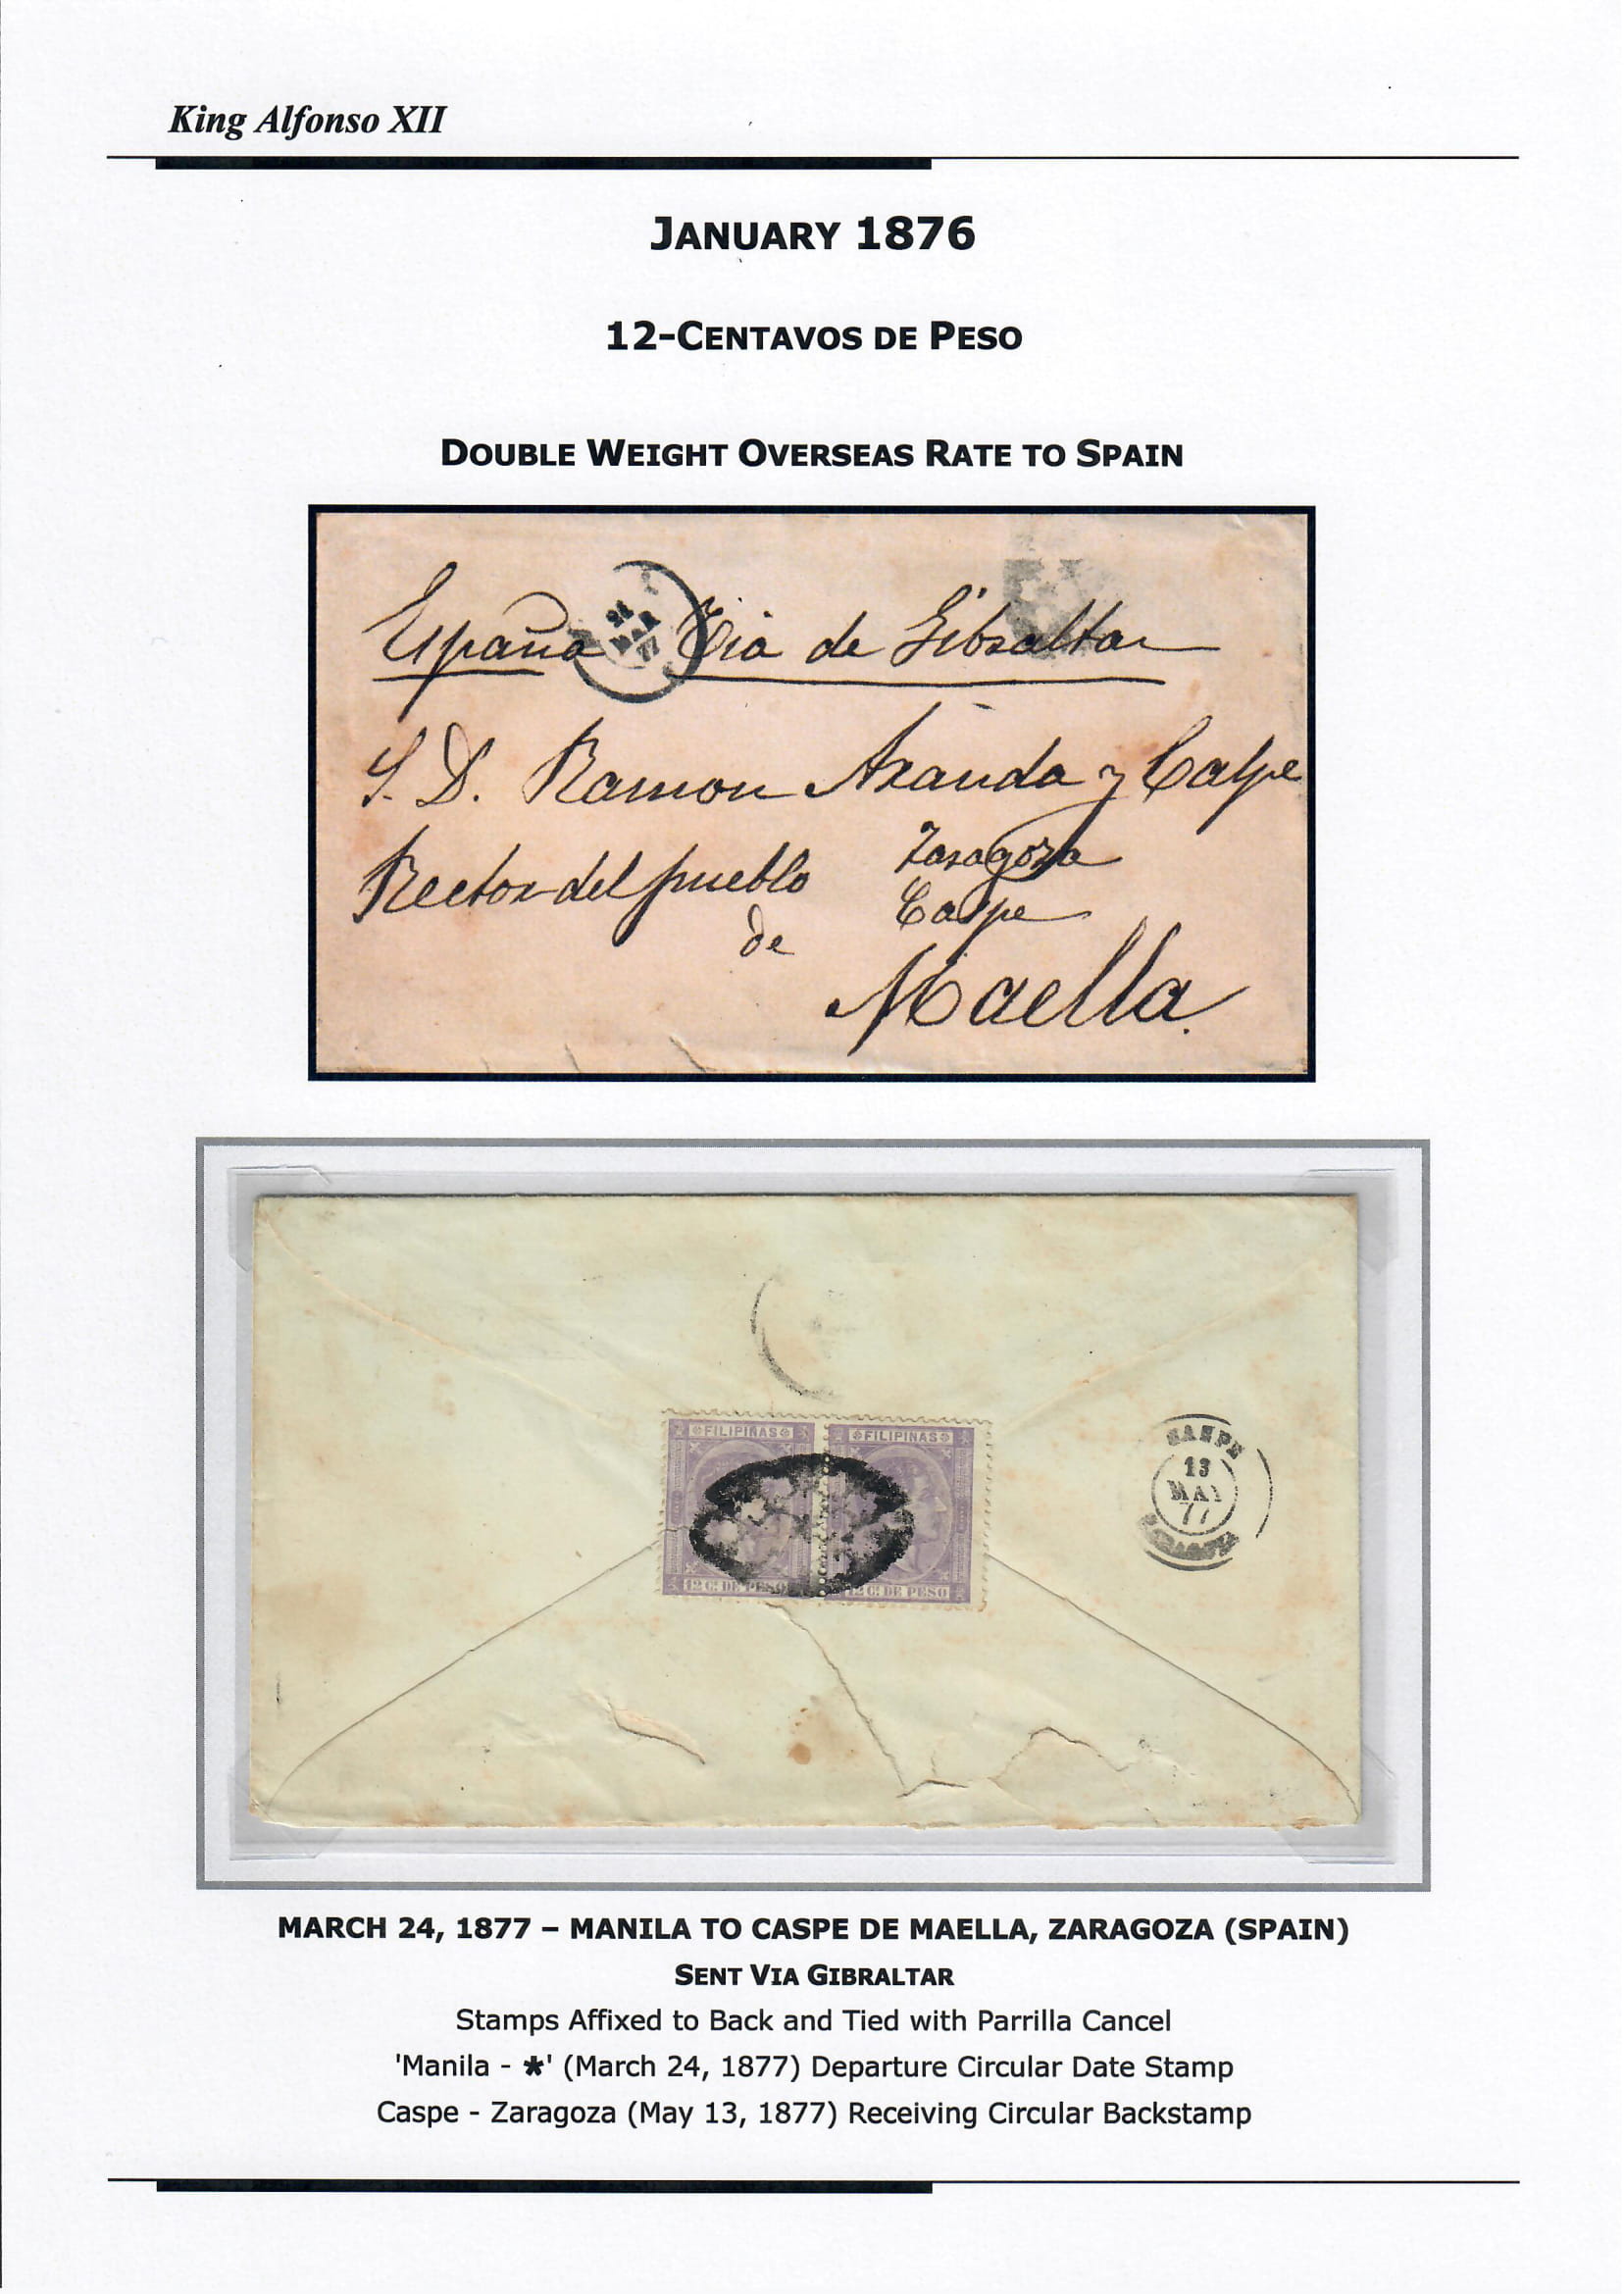 King Alfonso XII
JANUARY 1876
12-CENTAVOS DE PESO
DOUBLE WEIGHT OVERSEAS RATE TO SPAIN
España Via de Gibraltar
24
MAR
77
S. D. Ramon Aranda y Calpe
Rector del pueblo
de
Zaragoza
Caspe
Maella.
FILIPINAS FILIPINAS
12 C. DE PESO 12 C. DE PESO
CASPE
13
MAY
77
MARCH 24, 1877 – MANILA TO CASPE DE MAELLA, ZARAGOZA (SPAIN)
SENT VIA GIBRALTAR
Stamps Affixed to Back and Tied with Parrilla Cancel
'Manila - *' (March 24, 1877) Departure Circular Date Stamp
Caspe - Zaragoza (May 13, 1877) Receiving Circular Backstamp